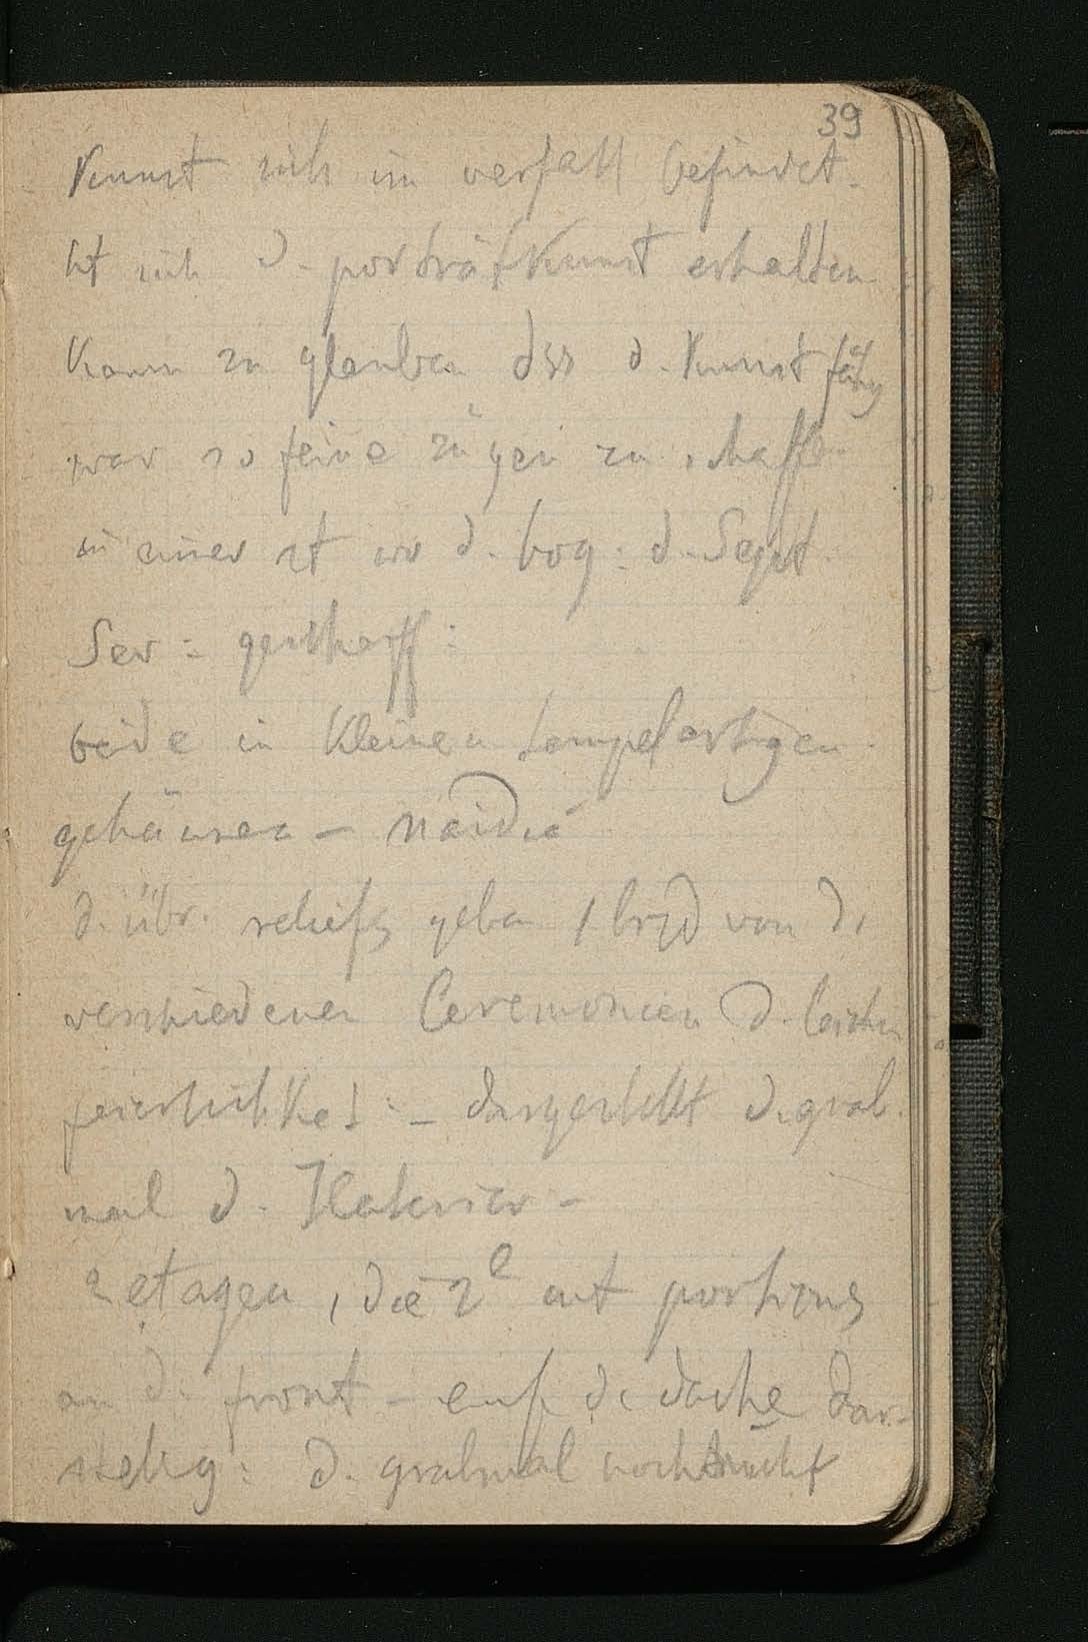 39
Kunst sich im verfall befindet.
ht sich d. porträtkunst erhalten
kaum zu glauben dss d. Kunst fähig
war so feine zügen zu schaff
in einer zt wo d. bog: d. Sept.
Sev: geschaff:
beide in kleinen tempelartigen
gehäusen – naidia
d. übr. reliefs geben 1 bild von d.
verschiedenen Ceremonien d. leichen
feierlichket: – dargestellt d. grab
mal d. Haterier –
2 etagen, die 2e mit portikus
an d. front – auf d. dache dar-
stellg: d. grabmal noch nicht